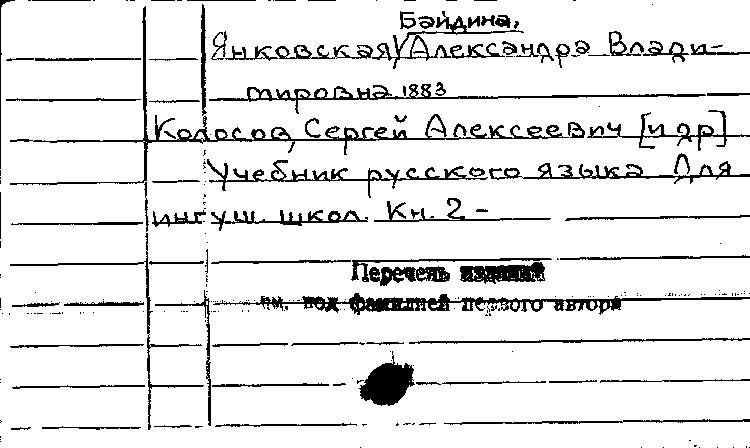 Байдина,
Янковская, Александра Влади-
мировна, 1883
Колосов, Сергей Алексеевич [и др]
Учебник русского языка Для
ингуш. школ. Кн. 2 -
Перечень изданий
см. под фамилией первого автора